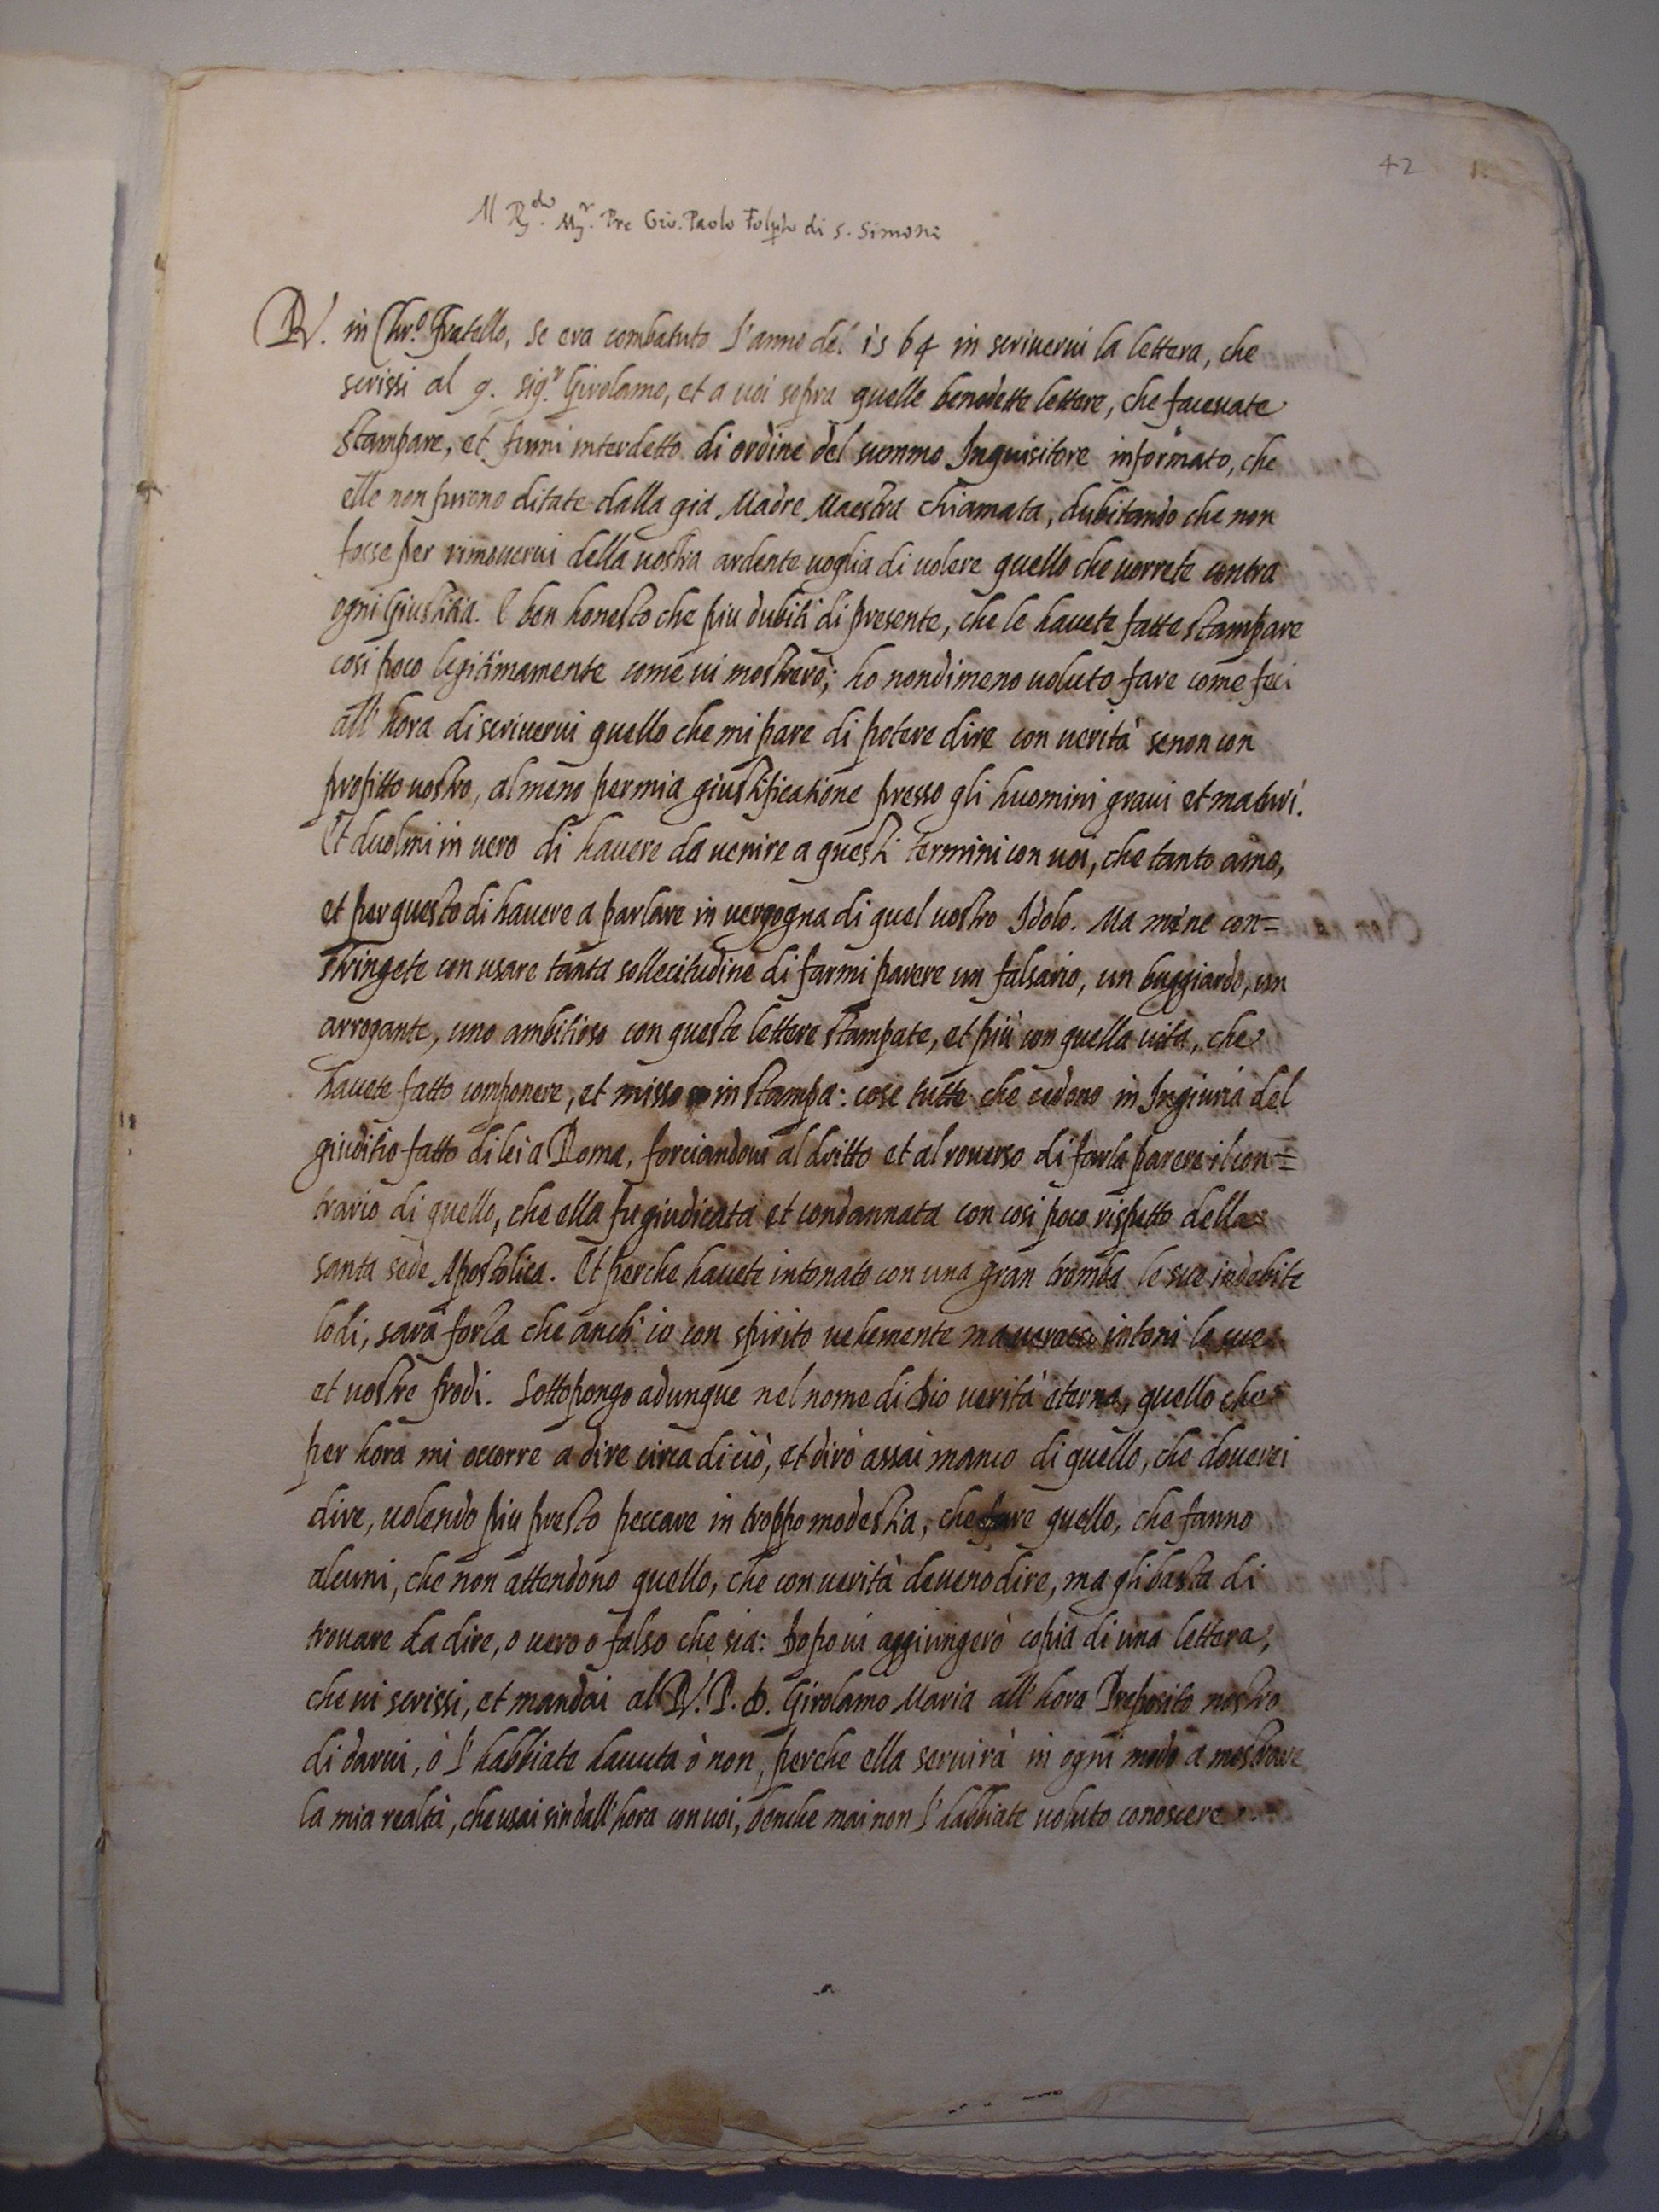 42
Al R.do M.r Pre Gio. Paolo Folpho di S. Simone
RV. in Chr.o Fratello, Se era combatuto l'anno del 1564 in scrivervi la lettera, che
scrissi al q. sig.r Girolamo, et a voi sopra quelle benedette lettere, che facevate
stampare, et funni interdetto di ordine del summo Inquisitore informato, che
elle non furono ditate dalla già Madre Maestra chiamata, dubitando che non
fosse per rimovervi della vostra ardente voglia di volere quello che vorrete contra
ogni giustitia. E ben honesto che piu dubiti di presente, che le havete fatte stampare
cosi poco legitimamente come vi mostrerò; ho nondimeno voluto fare come feci
all'hora di scrivervi quello che mi pare di potere dire con verità se non con
profitto vostro, almeno per mia giustificatione presso gli huomini gravi et maturi.
Et duolmi in vero di havere da venire a questi termini con voi, che tanto amo,
et per questo di havere a parlare in vergogna di quel vostro Idolo. Ma mi ne con=
stringete con usare tanta sollecitudine di farmi parere un falsario, un buggiardo, un
arrogante, uno ambitioso con queste lettere stampate, et più con quella vita, che
havete fatto componere, et misso in stampa: cose tutte che cedono in Ingiuria del
giuditio fatto di lei a Roma, forciandovi al dritto et al roverso di farla parere il con=
trario di quello, che ella fu giudicata et condannata con cosi poco rispetto della
santa sede Apostolica. Et perche havete intonato con una gran tromba le sue indebite
lodi, sarà forza che anch'io con spirito vehemente ma verace intoni le sue
et vostre frodi. Sottopongo adunque nel nome di Dio verità eterna, quello che
per hora mi occorre a dire circa di ciò, et dirò assai manco di quello, che doverei
dire, volendo piu presto peccare in troppo modestia, che fare quello, che fanno
alcuni, che non attendono quello, che con verità deveno dire, ma gli basta di
trovare da dire, o vero o falso che sia: Dopo vi aggiungerò copia di una lettera,
che vi scrissi, et mandai al RV. P. D. Girolamo Maria all'hora Preposito nostro
di darvi, ò l'habbiate havuta ò non, perche ella servirà in ogni modo a mostrare
la mia realtà, che usai sin dall'hora con voi, benche mai non l'habbiate voluto conoscere.